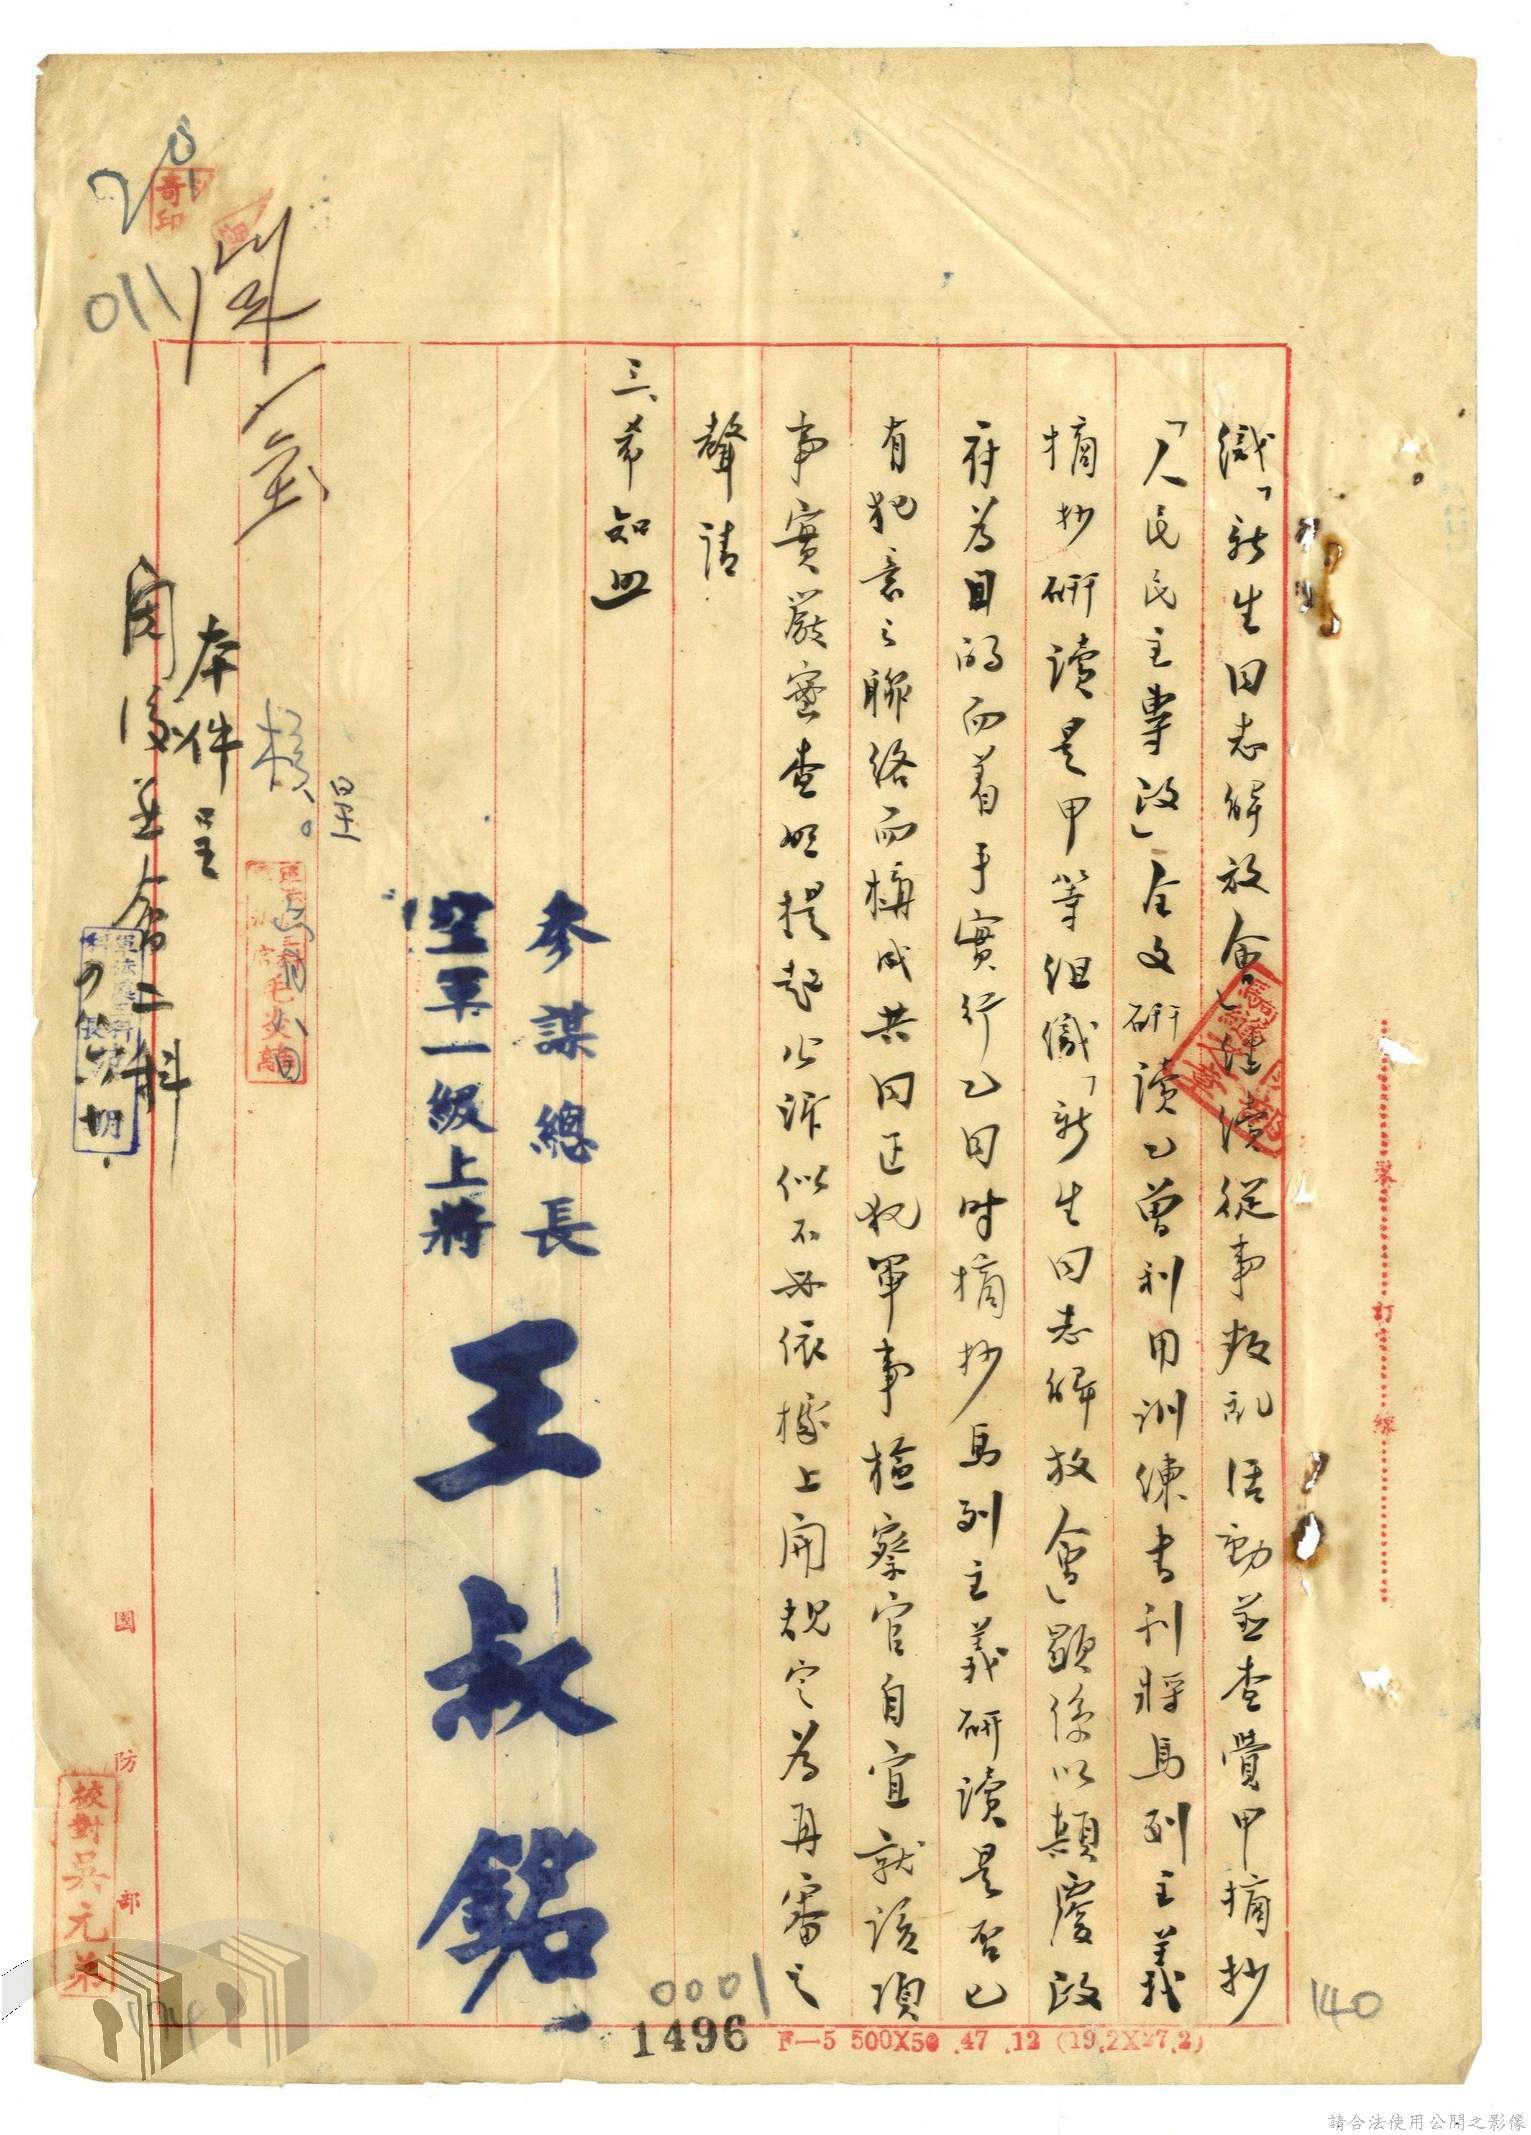 織「新生同志解放會」繼續從事叛乱活動並查覺甲摘抄
「人民民主專政」全文研讀乙曾利用訓練書刊將馬列主義
摘抄研讀是甲等組織「新生同志解放會」顯係以顛覆政
府為目的而着手實行乙同時摘抄馬列主義研讀是否已
有犯意之聯絡而構成共同正犯軍事檢察官自宜就該項
事實嚴密查明提起公訴似不必依據上開規定為再審之
聲請
三、希知照
參謀總長
空軍一級上將
王叔銘
呈
核。
毛炎
本件呈
閱後並會二科
奇印
011
校對吳元弟
國防部
裝訂線
140
0001
1496
F—5 500X50 .47 .12 (19.2X27.2)
請合法使用公開之影像